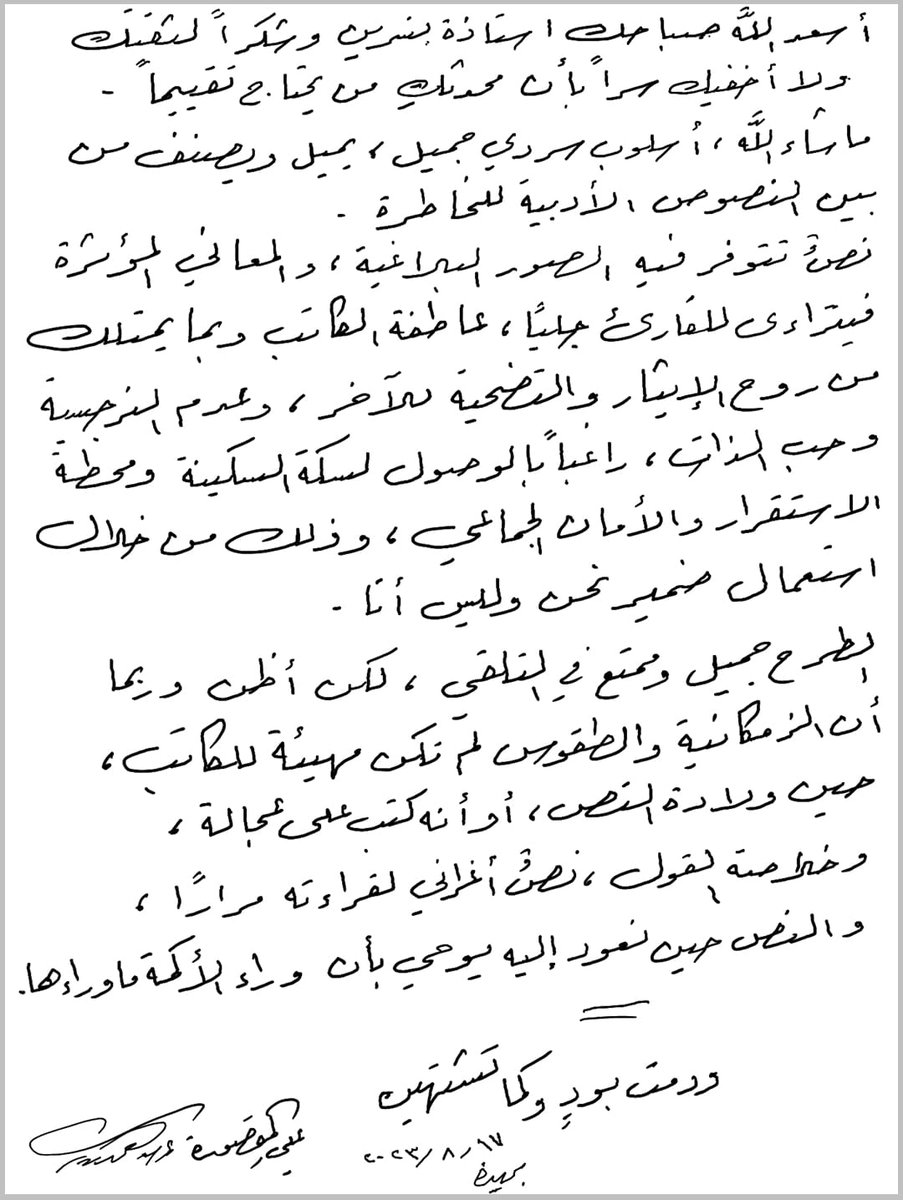 أسعد الله صباحك استاذة بنسرين وشكراً لثقتك
ولا أخفيك سراً بأن محدثكِ من يحتاج تقييماً -
ماشاء الله، أسلوب سردي جميل، يميل ويصنف من
بين النصوص الأدبية للخاطرة -
نصٌ تتوفر فيه الصور البلاغية، والمعاني المؤثرة
فيتراءى للقارئ جليًا، عاطفة الكاتب وبما يمتلك
من روح الإيثار والتضحية للآخر، وعدم النرجسية
وحب الذات، راغباً بالوصول لسكة السكينة ومحطة
الاستقرار والأمان الجماعي، وذلك من خلال
استعمال ضمير نحن وليس أنا -
الطرح جميل وممتع في التلقي، لكن أظن وربما
أن الزمكانية والطقوس لم تكن مهيئة للكاتب،
حين ولادة النص، أو أنه كتب على عجالة،
وخلاصة القول، نصٌ أغراني لقراءته مرارًا،
والنص حين نعود إليه يوحي بأن وراء الأكمة ماوراءها.
ودمت بودٍ وكما تشتهين
علي المقصورة
٢٠٢٣/٨/١٧